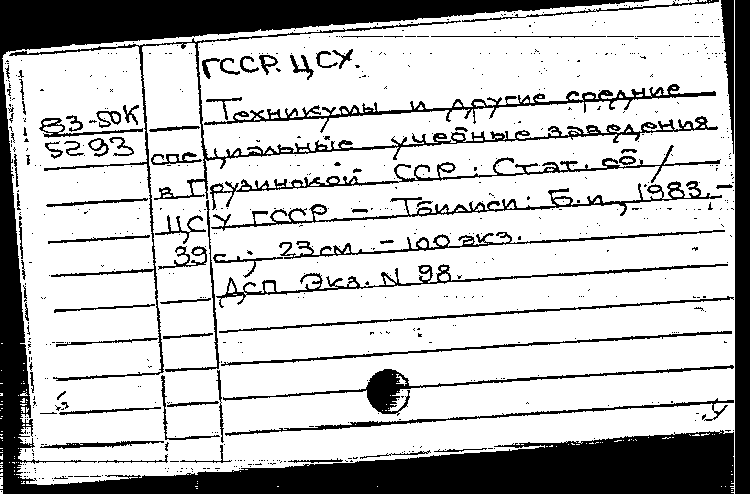 ГССР. ЦСУ.
83-50К
5293
Техникумы и другие средние
специальные учебные заведения
в Грузинской ССР : Стат. сб. /
ЦСУ ГССР – Тбилиси : Б.и, 1983. –
39 с. ; 23 см. – 100 экз.
ДСП Экз. N 98.